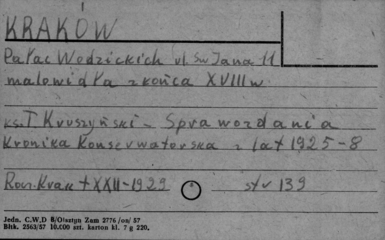 KRAKÓW
Pałac Wodzickich ul. Św Jana 11
malowidła z końca XVIII w
ks. T Kruszyński - Sprawozdania
Kronika Konserwatorska z lat 1925-8
Rocz. Krak t XXII-1929 str 139
Jedn. C.W.D B/Olsztyn Zam 2776/on/57
Bltk. 2563/57 10.000 szt. karton kl. 7 g 220.